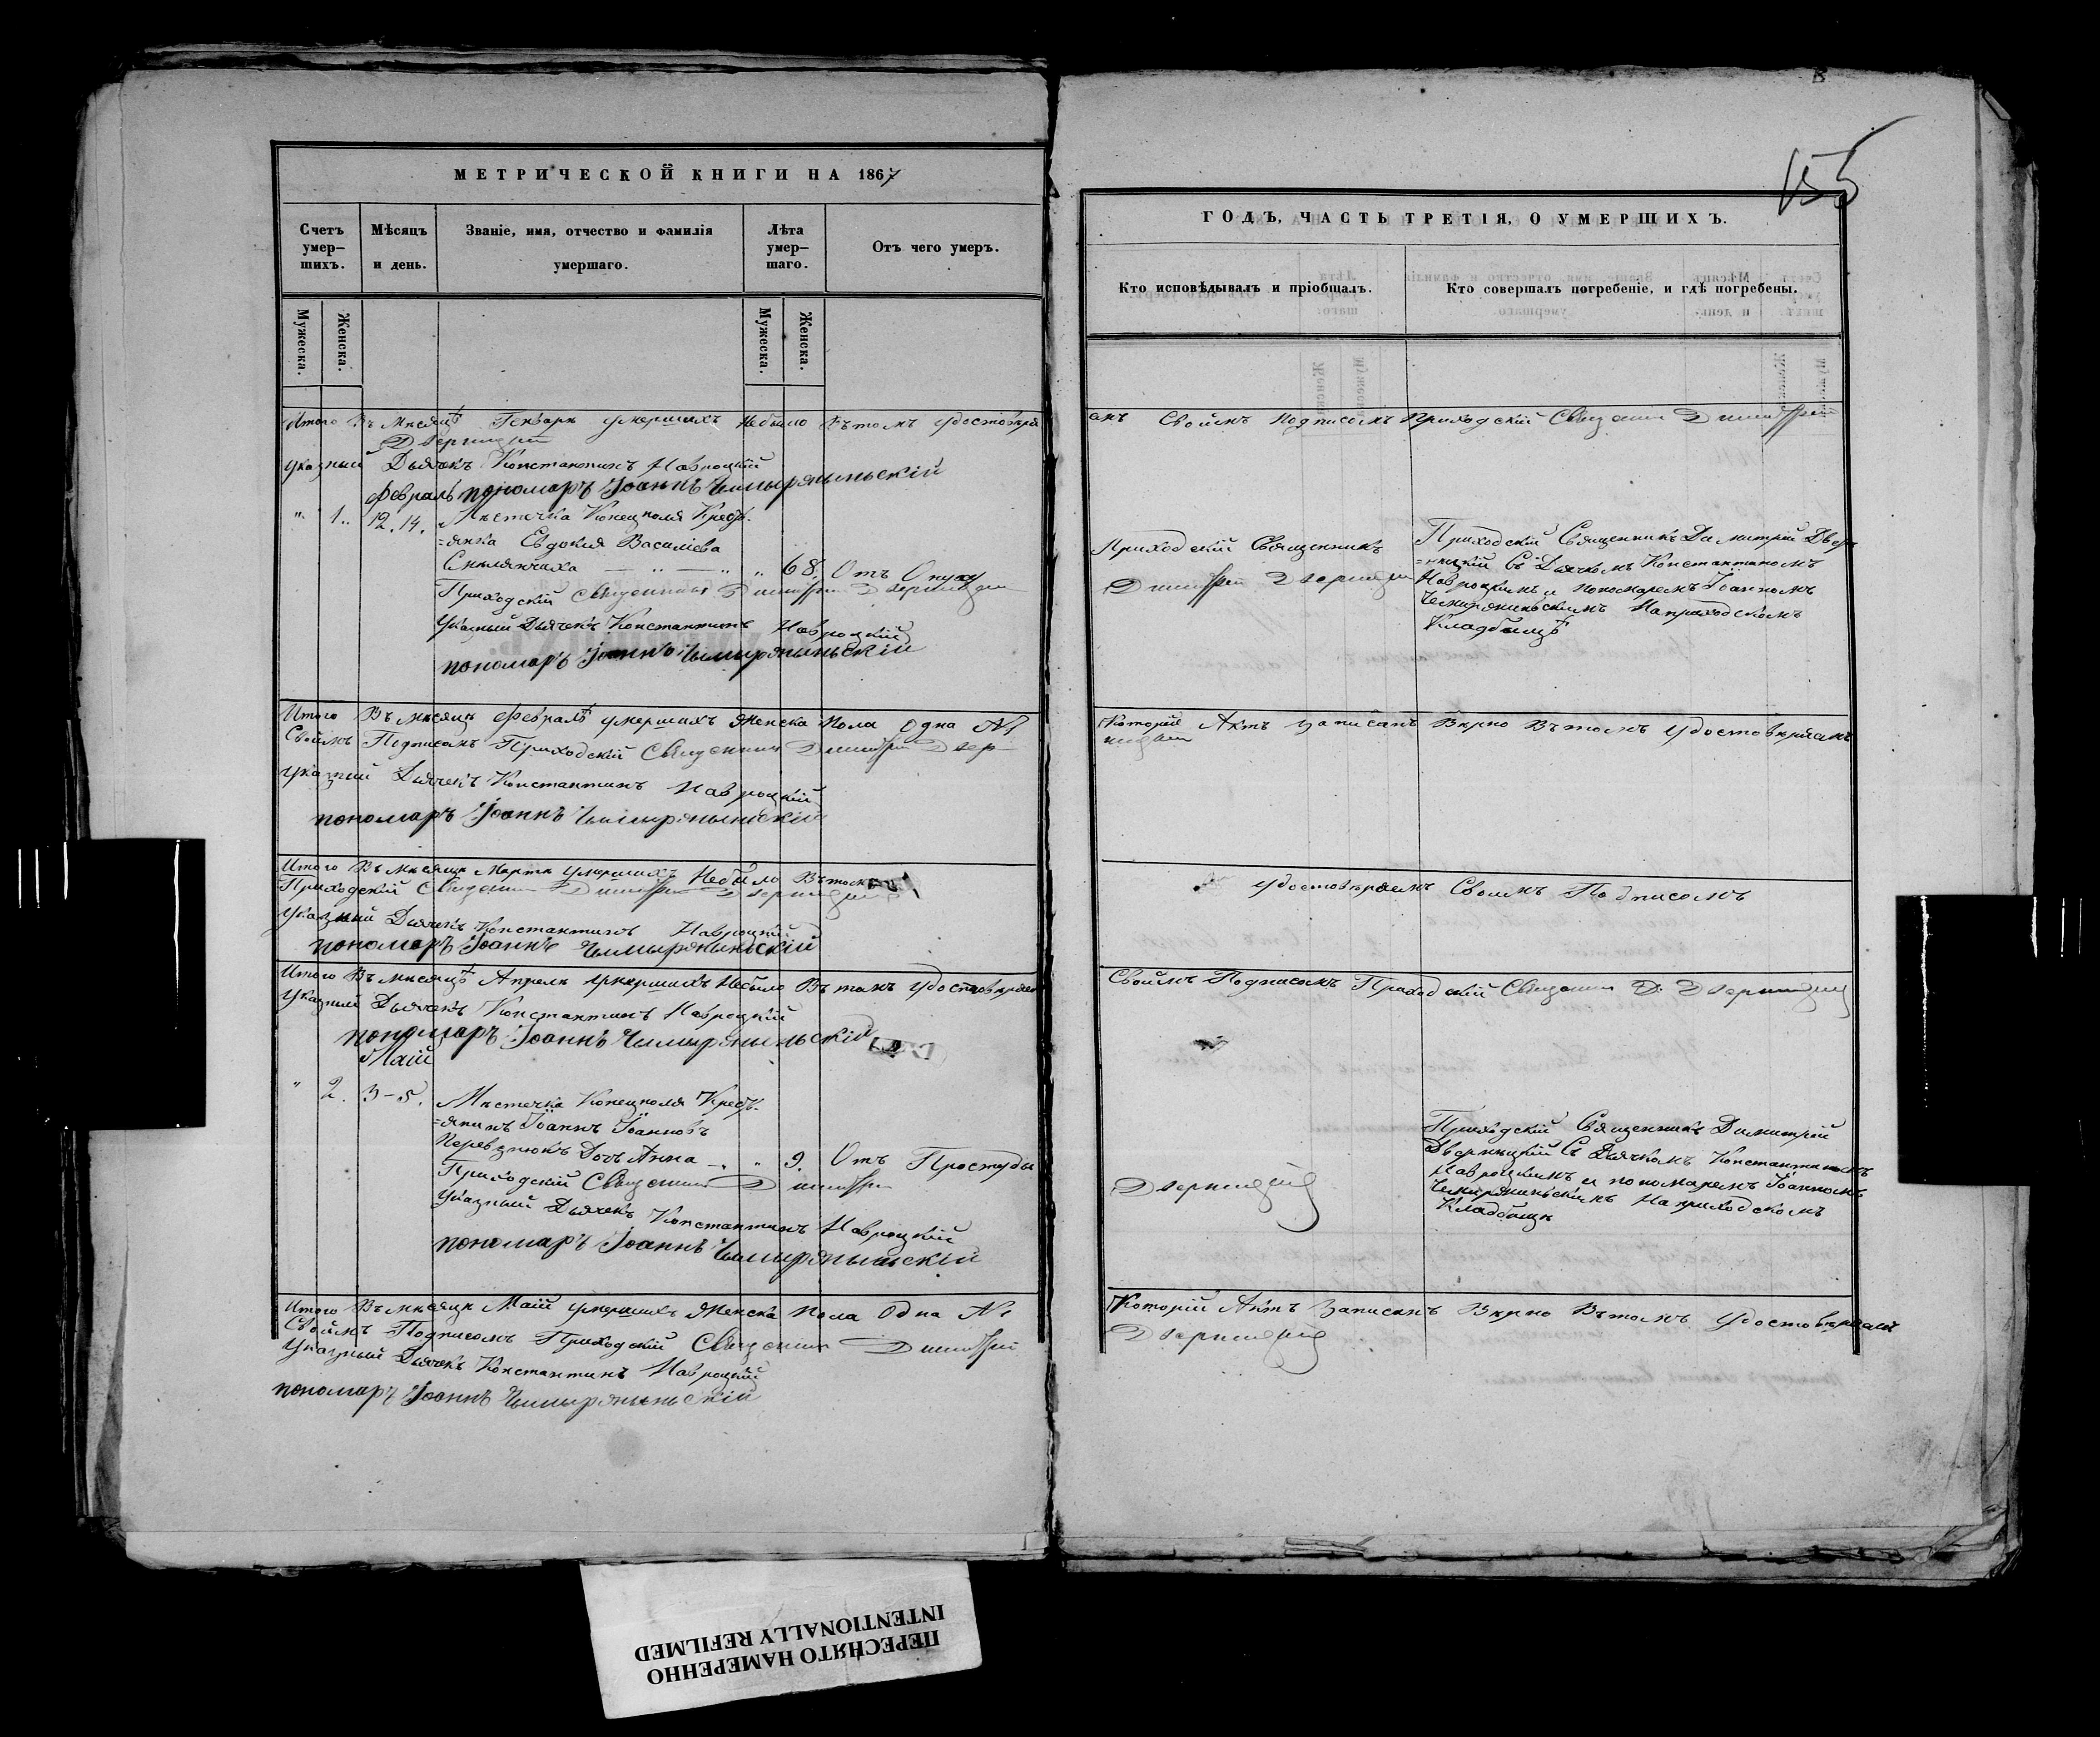 МЕТРИЧЕСКОЙ КНИГИ НА 1867
Счетъ умер–шихъ.
Мѣсяцъ и день.
Званіе, имя, отчество и фамилія умершаго.
Лѣта умер–шаго.
Отъ чего умеръ.
Мужеска.
Женска.
Мужеска.
Женска.
Итого Въ мѣсяцѣ Генварѣ умершихъ Небыло Вътомъ удостовѣря
Дверницкій
Указный Дьячекъ Константинъ Навроцкій
Февраль пономаръ Іоаннъ Чимирянынскій
" 1.. 12. 14. Мѣстечка Конецполя Крест.
=янка Евдокия Василіева
— " — " " 68. Отъ Опуху
Приходскій Священникъ Димитрій Дверницкій
Указный Дьячекъ Константинъ Навроцкій
пономаръ Іоаннъ Чимирянынскій
Итого Въ мѣсяцѣ Февралѣ умершихъ Женска Пола Одна №
Своимъ Подписомъ Приходскій Священникъ Димитрій Двер
Указный Дьячекъ Константинъ Навроцкій
пономаръ Іоаннъ Чимирянынскій
Итого Въ мѣсяцѣ Мартѣ умершихъ Небыло Вътомъ
Приходскій Священникъ Димитрій Дверницкій
Указный Дьячекъ Константинъ Навроцкій
пономаръ Іоаннъ Чимирянынскій
Итого Въ мѣсяцѣ Апрелѣ умершихъ Небыло Вътомъ удостовѣряем
Указный Дьячекъ Константинъ Навроцкій
пономаръ Іоаннъ Чимирянынскій
Маій
" 2. 3–5. Мѣстечка Конецполя Крест.
=янинъ Іоаннъ Іоанновъ
Перевзнюкъ Дочь Анна — " " 9. Отъ Простуды
Приходскій Священникъ Димитрій
Указный Дьячекъ Константинъ Навроцкій
пономаръ Іоаннъ Чимирянынскій
Итого Въ мѣсяцѣ Маій умершихъ Женска Пола Одна №
Своимъ Подписомъ Приходскій Священникъ Димитрій
Указный Дьячекъ Константинъ Навроцкій
пономаръ Іоаннъ Чимирянынскій
155
ГОДЪ, ЧАСТЬ ТРЕТІЯ, О УМЕРШИХЪ.
Кто исповѣдывалъ и пріобщалъ.
Кто совершалъ погребеніе, и гдѣ погребены.
емъ Своимъ Подписомъ Приходскій Священникъ Димитрій
Приходскій Священникъ
Димитрій Дверницкій
Приходскій Священникъ Димитрій Двер
=ницкій Съ Дьячкомъ Константиномъ
Навроцкимъ и пономаремъ Іоанномъ
Чемирянинскимъ Наприходскомъ
Кладбищѣ
Которій Актъ записанъ Вѣрно Вътомъ удостовѣряемъ
ницкій
удостовѣряемъ Своимъ Подписомъ
Своимъ Подписомъ Приходскій Священникъ Д. Дверницкій
Дверницкій
Приходскій Священникъ Димитрій
Дверницкій Съ Дьячкомъ Константиномъ
Навроцкимъ и пономаремъ Іоанномъ
Чемирянинскимъ Наприходскомъ
Кладбищѣ
Которій Актъ Записанъ Вѣрно Вътомъ Удостовѣряемъ
Дверницкій
ПЕРЕСНЯТО НАМЕРЕННО
INTENTIONALLY REFILMED